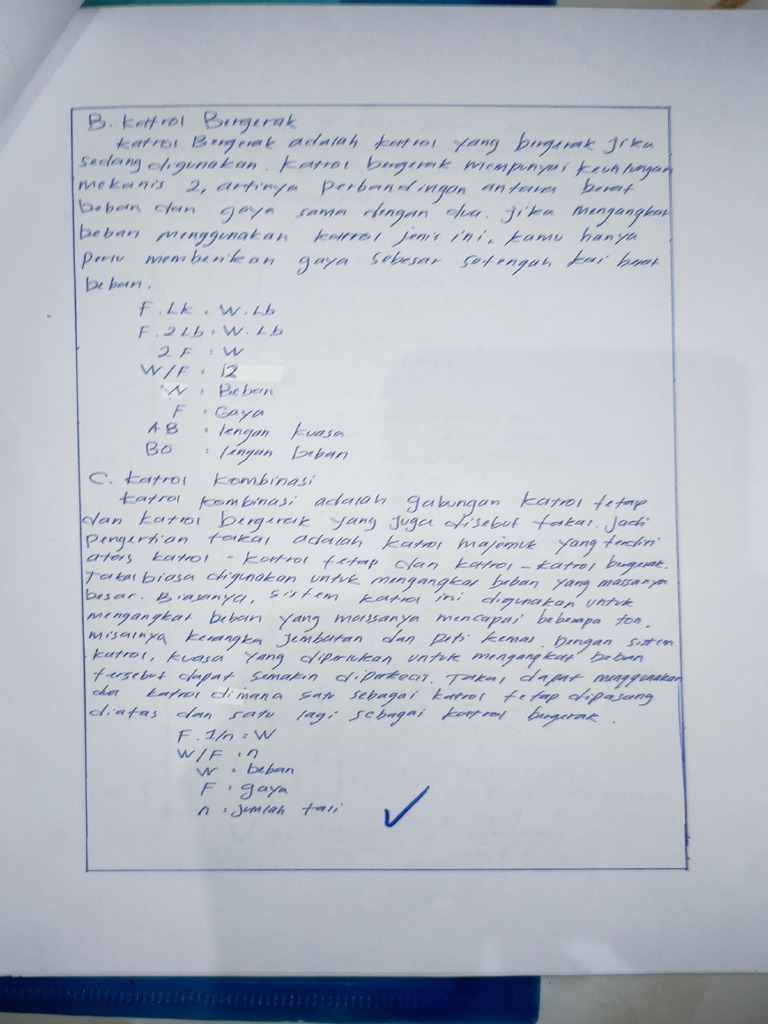 B. Katrol Bergerak
Katrol Bergerak adalah katrol yang bergerak jika
sedang digunakan. Katrol bergerak mempunyai keuntungan
mekanis 2, artinya perbandingan antara berat
beban dan gaya sama dengan dua. Jika mengangkat
beban menggunakan katrol jenis ini, kamu hanya
perlu memberikan gaya sebesar setengah kai berat
beban.
F . Lk = W . Lb
F . 2 Lb = W . Lb
2 F = W
W/F = 2
W = Beban
F = Gaya
AB = lengan kuasa
BO = lengan beban
C. Katrol Kombinasi
Katrol kombinasi adalah gabungan katrol tetap
dan katrol bergerak yang juga disebut takal. Jadi
pengertian takal adalah katrol majemuk yang terdiri
atas katrol - katrol tetap dan katrol - katrol bergerak.
Takal biasa digunakan untuk mengangkat beban yang massanya
besar. Biasanya, sistem katrol ini digunakan untuk
mengangkat beban yang massanya mencapai beberapa ton.
misalnya kerangka jembatan dan peti kemas. Dengan sistem
katrol, kuasa yang diperlukan untuk mengangkat beban
tersebut dapat semakin diperkecil. Takal dapat menggunakan
dua katrol dimana satu sebagai katrol tetap dipasang
diatas dan satu lagi sebagai katrol bergerak.
F . 1/n = W
W/F = n
W = beban
F = gaya
n = jumlah tali